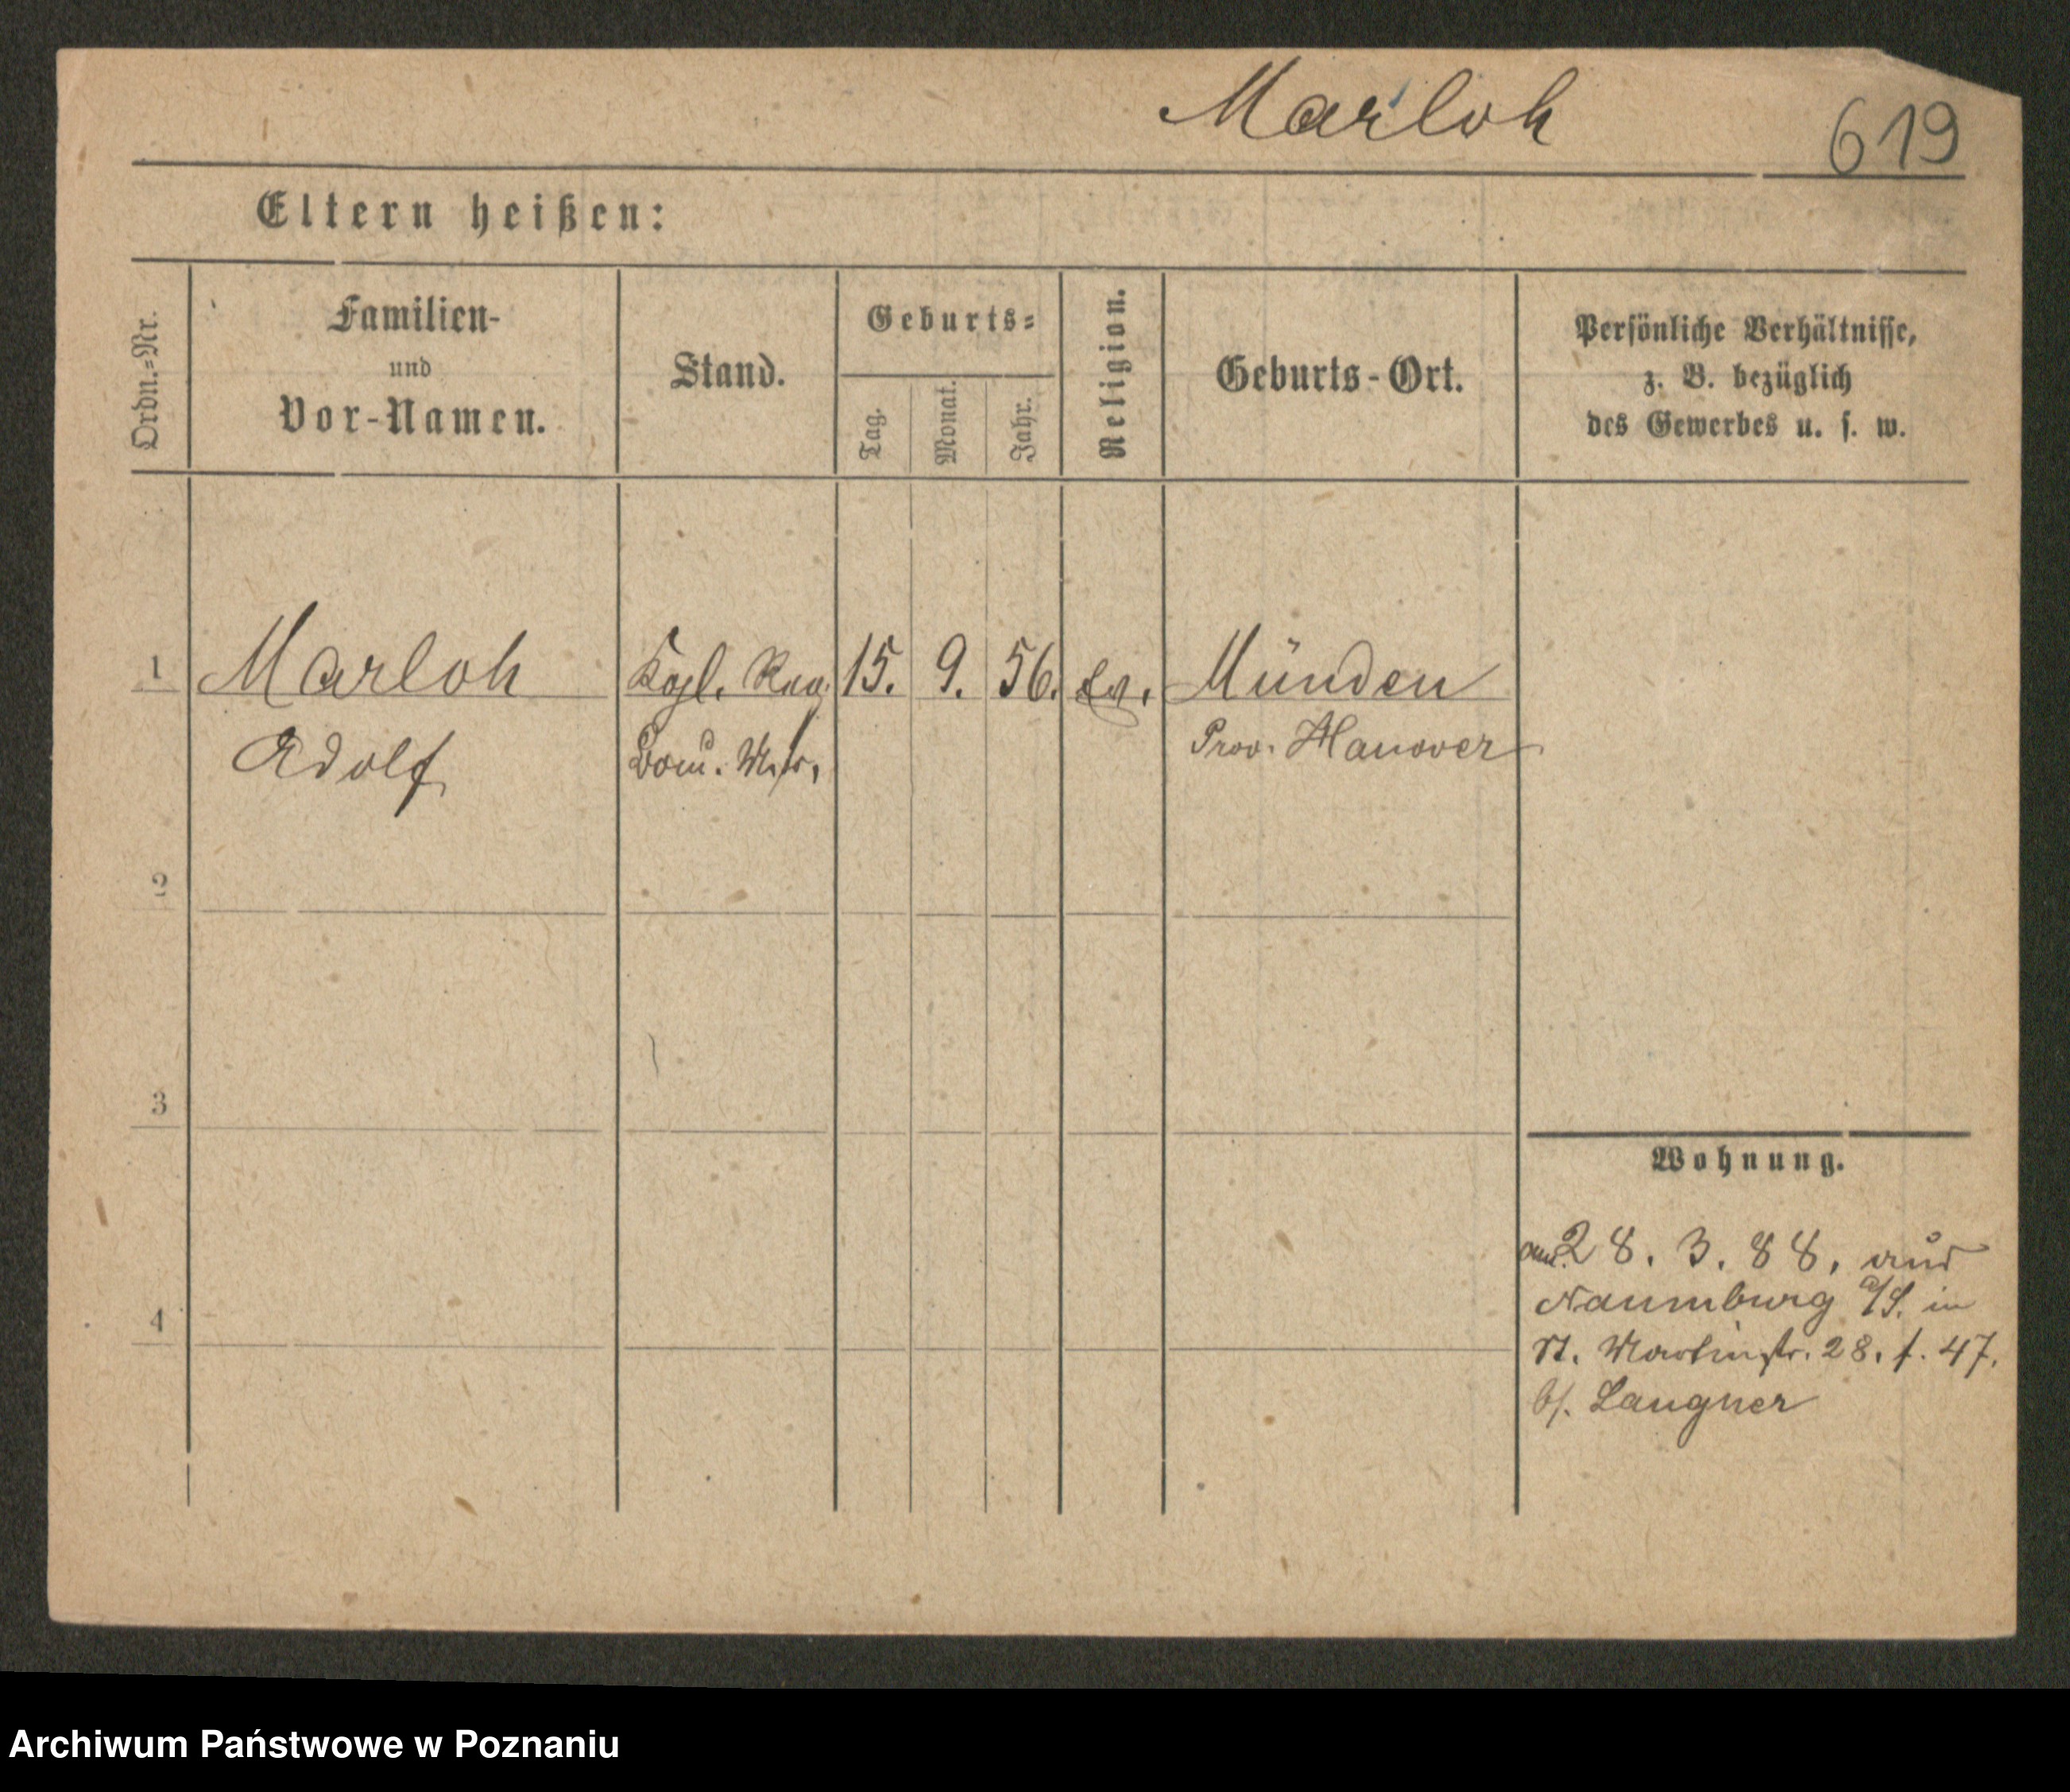 Marloh
619
Eltern heißen:
Ordn.=Nr.
Familien-
und
Vor-Namen.
Stand.
Geburts=
Tag.
Monat.
Jahr.
Religion.
Geburts-Ort.
Persönliche Verhältnisse,
z. B. bezüglich
des Gewerbes u. s. w.
1
Marloh
Kgl. Reg.
15. 9. 56. Ev.
Münden
Adolf
Prov. Hanover
2
3
4
Wohnung.
28. 3. 88. aus
Naumburg a/S. in
St. Martinstr. 28. f. 47.
b/. Langner
Archiwum Państwowe w Poznaniu